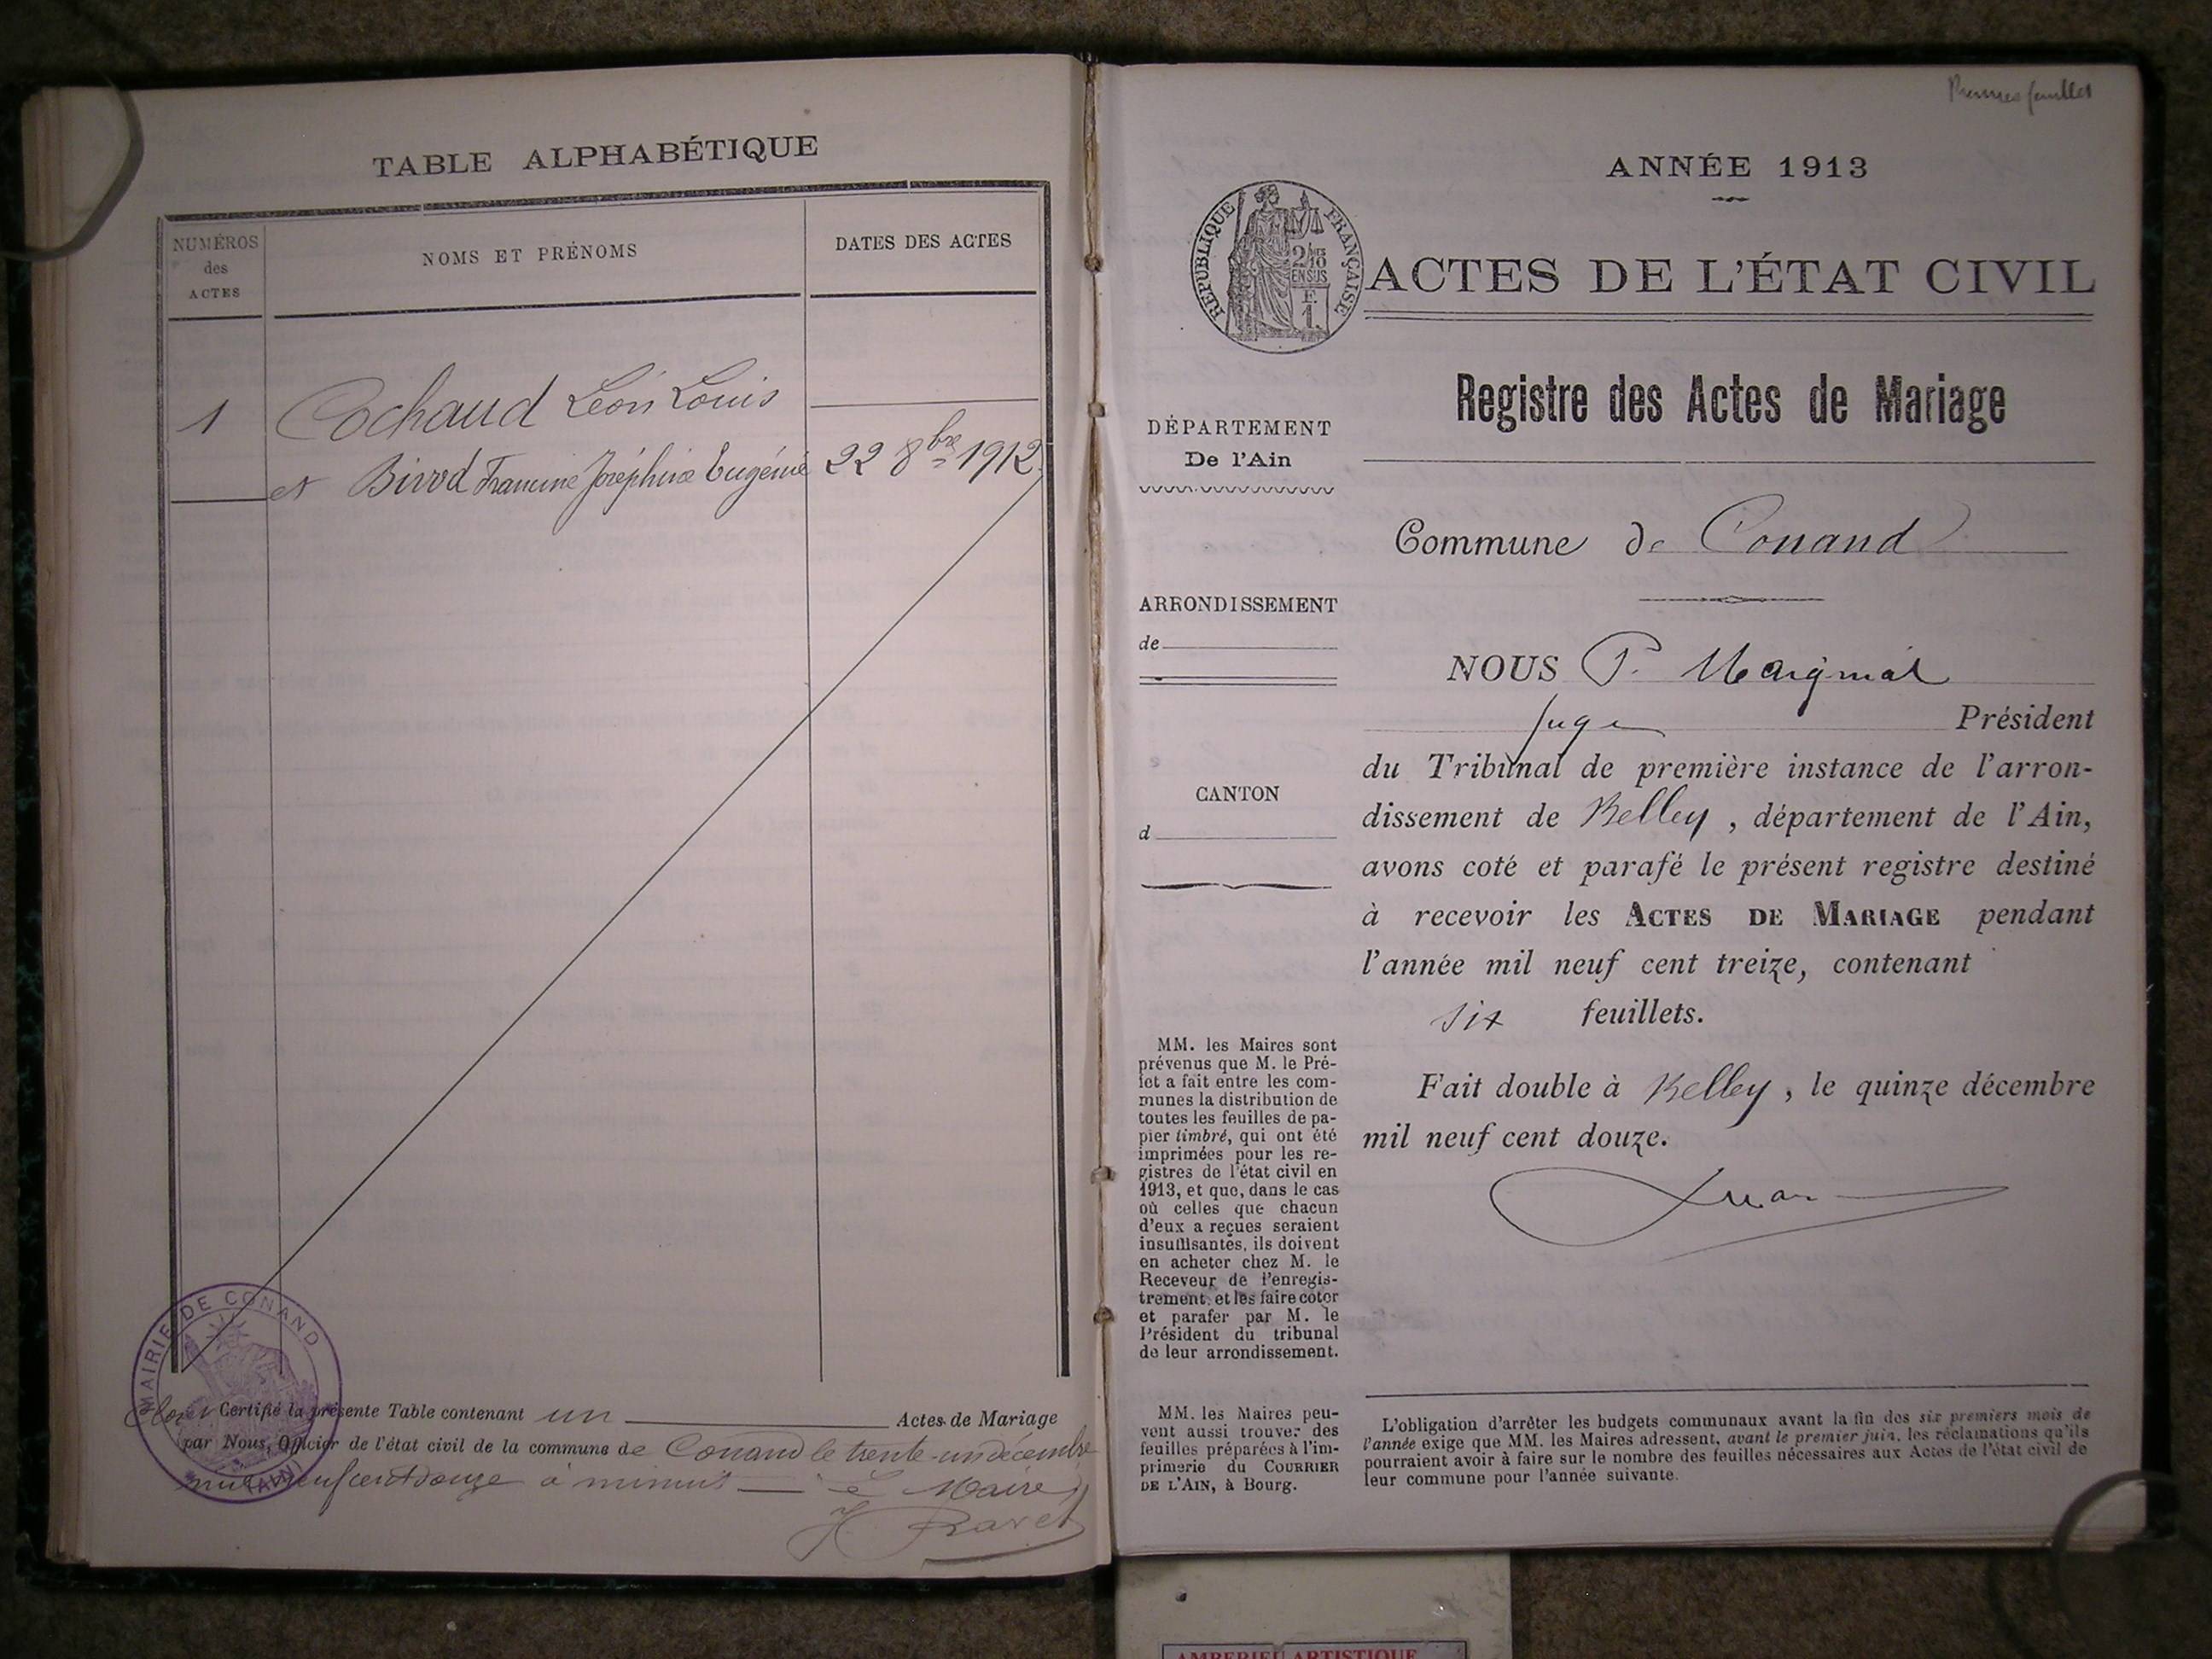 TABLE ALPHABÉTIQUE
NUMÉROS
des
ACTES
NOMS ET PRÉNOMS
DATES DES ACTES
1
Cochaud Léon Louis
et Birod Francine Joséphine Eugénie
22 8bre 1912
MAIRIE DE CONAND
(AIN)
Clos et Certifié la présente Table contenant un Actes de Mariage
par Nous, Officier de l'état civil de la commune de Conand le trente-un décembre
mil neuf cent douze à minuit Le Maire
J. Ravet
Premier feuillet
ANNÉE 1913
RÉPUBLIQUE FRANÇAISE
ACTES DE L'ÉTAT CIVIL
Registre des Actes de Mariage
DÉPARTEMENT
De l'Ain
Commune de Conand
ARRONDISSEMENT
de
CANTON
d
NOUS P. Maigniat
Juge Président
du Tribunal de première instance de l'arron-
dissement de Belley, département de l'Ain,
avons coté et parafé le présent registre destiné
à recevoir les ACTES DE MARIAGE pendant
l'année mil neuf cent treize, contenant
six feuillets.
Fait double à Belley, le quinze décembre
mil neuf cent douze.
MM. les Maires sont
prévenus que M. le Pré-
fet a fait entre les com-
munes la distribution de
toutes les feuilles de pa-
pier timbré, qui ont été
imprimées pour les re-
gistres de l'état civil en
1913, et que, dans le cas
où celles que chacun
d'eux a reçues seraient
insuffisantes, ils doivent
en acheter chez M. le
Receveur de l'enregis-
trement, et les faire coter
et parafer par M. le
Président du tribunal
de leur arrondissement.
MM. les Maires peu-
vent aussi trouver des
feuilles préparées à l'im-
primerie du COURRIER
DE L'AIN, à Bourg.
L'obligation d'arrêter les budgets communaux avant la fin des six premiers mois de
l'année exige que MM. les Maires adressent, avant le premier juin, les réclamations qu'ils
pourraient avoir à faire sur le nombre des feuilles nécessaires aux Actes de l'état civil de
leur commune pour l'année suivante.
AMBERIEU ARTISTIQUE